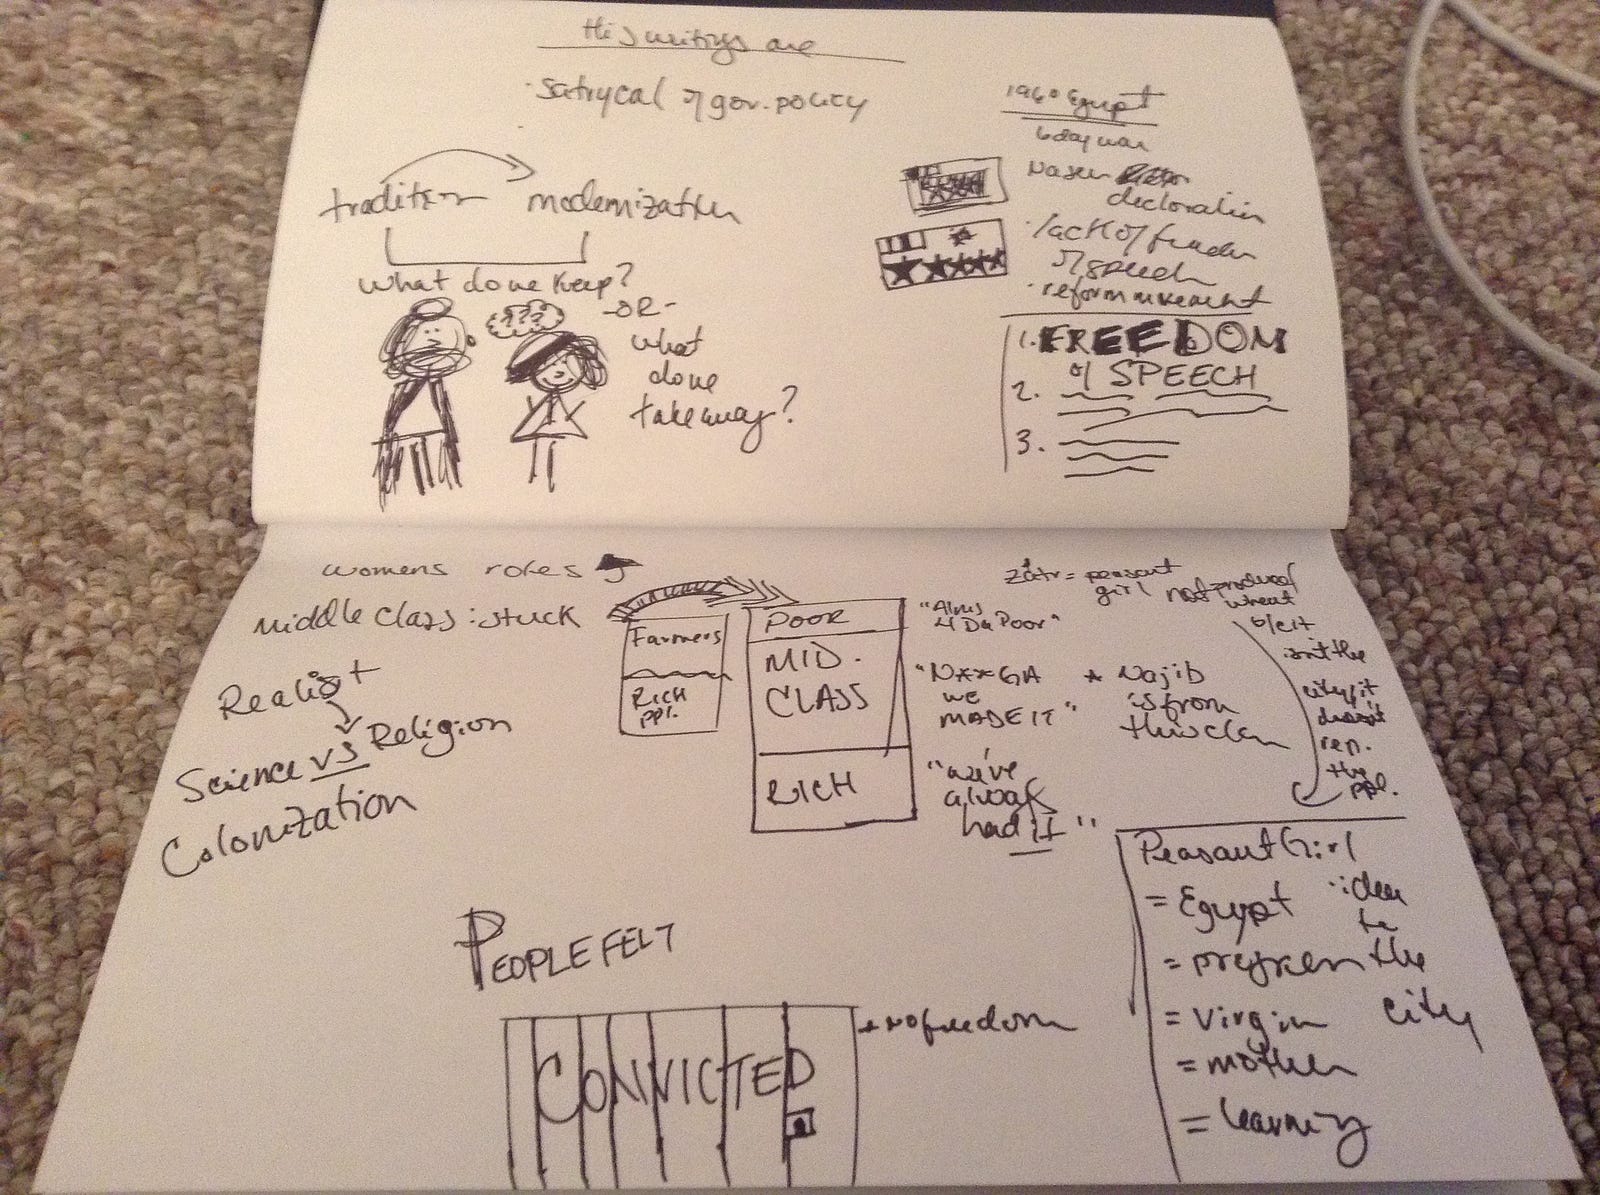 His writings are
· Satrycal of gov. policy
tradition modernization
What do we keep?
-OR-
what
do we
take away?
???
1960 Egypt
6 day war
Naser
declaration
· lack of freedom
of speech
· reform movement
1. FREEDOM
of SPEECH
2.
3.
womens roles
middle class: stuck
Realist
Science vs Religion
Colonization
Farmers
RICH
ppl.
POOR
MID.
CLASS
RICH
"Alms
4 Da Poor"
"N**GA
we
MADE IT"
* Najib
is from
this class
"we've
always
had it"
= peasant
girl
not produce/
wheat
b/c it
isn't the
city/it
doesn't
rep.
the
ppl.
Peasant Girl
= Egypt
= progress
= virgin
= mother
= learning
: idea
to
the
city
PEOPLE FELT
CONVICTED
* no freedom